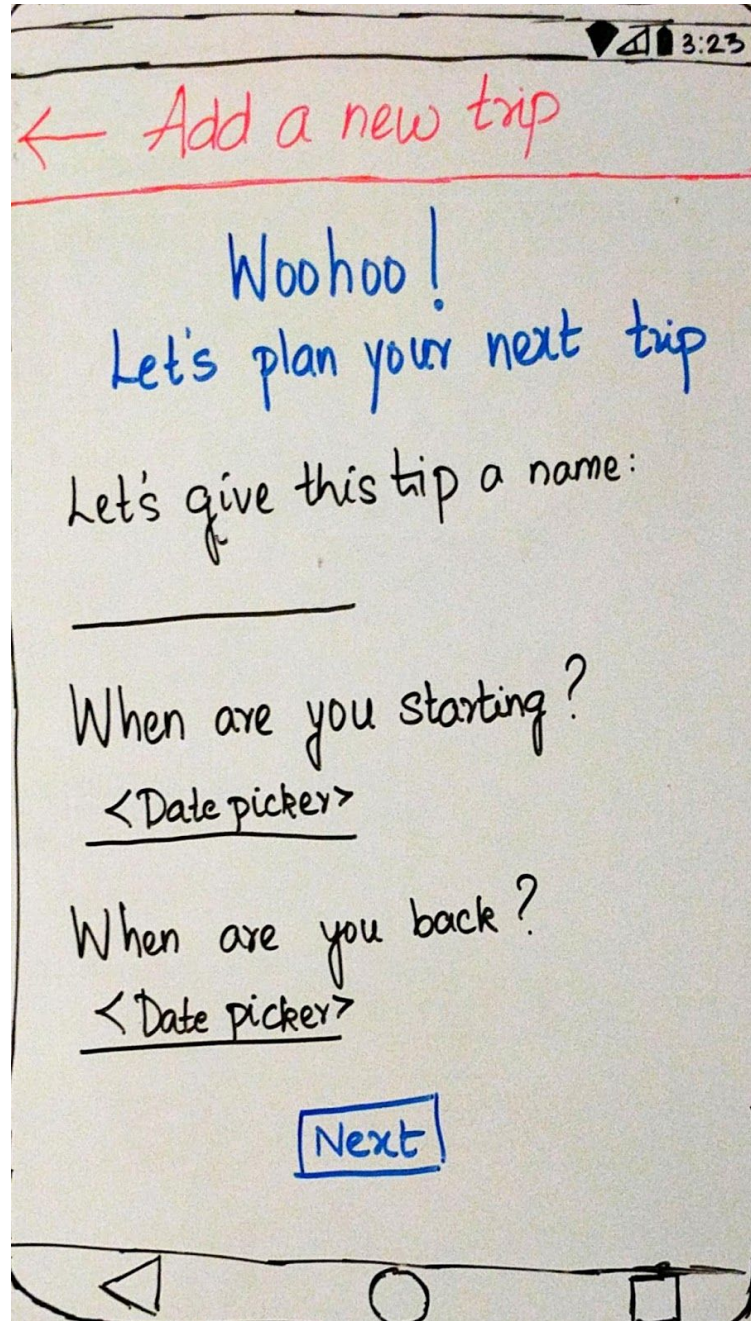 3:23
← Add a new trip
Woohoo!
Let's plan your next trip
Let's give this tip a name:
When are you starting?
<Date picker>
When are you back?
<Date picker>
Next